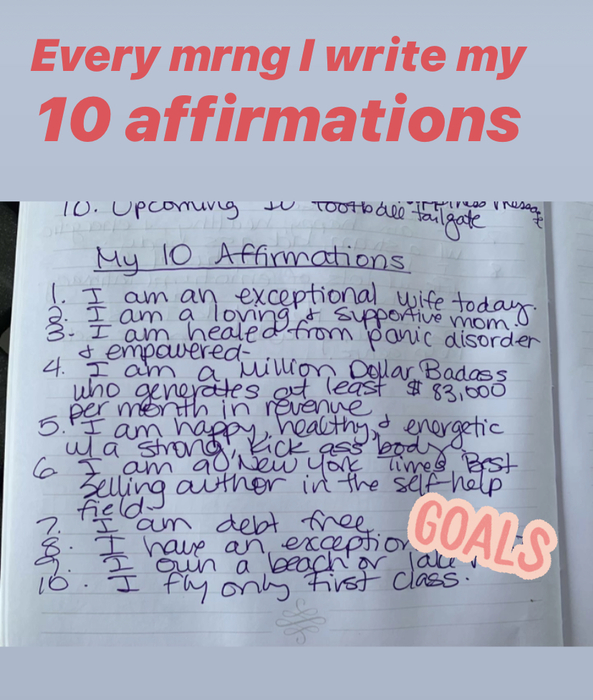 Every mrng I write my
10 affirmations
10. Upcoming IU football tailgate
My 10 Affirmations
1. I am an exceptional wife today.
2. I am a loving & supportive mom.
3. I am healed from panic disorder
& empowered-
4. I am a Million Dollar Badass
who generates at least $83,000
per month in revenue
5. I am happy, healthy, & energetic
w/ a strong, kick ass body
6 I am a New York Times Best
Selling author in the self-help
field-
7. I am debt free
8. I have an exception
9. I own a beach or lake
10. I fly only first class.
GOALS